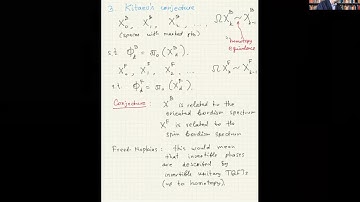 3. Kitaev's conjecture
X_0^B, X_1^B, X_2^B, .... ΩX_d^B ~ X_{d-1}^B
(spaces with marked pts) "homotopy equivalence"
s.t. Φ_d^B = π_0(X_d^B)
X_0^F, X_1^F, X_2^F, ... ΩX_d^F ~ X_{d-1}^F
s.t. Φ_d^F = π_0(X_d^F).
Conjecture X^B is related to the
oriented bordism spectrum
X^F is related to the
spin bordism spectrum
Freed-Hopkins: this would mean
that invertible phases
are described by
invertible unitary TQFTs
(up to homotopy).